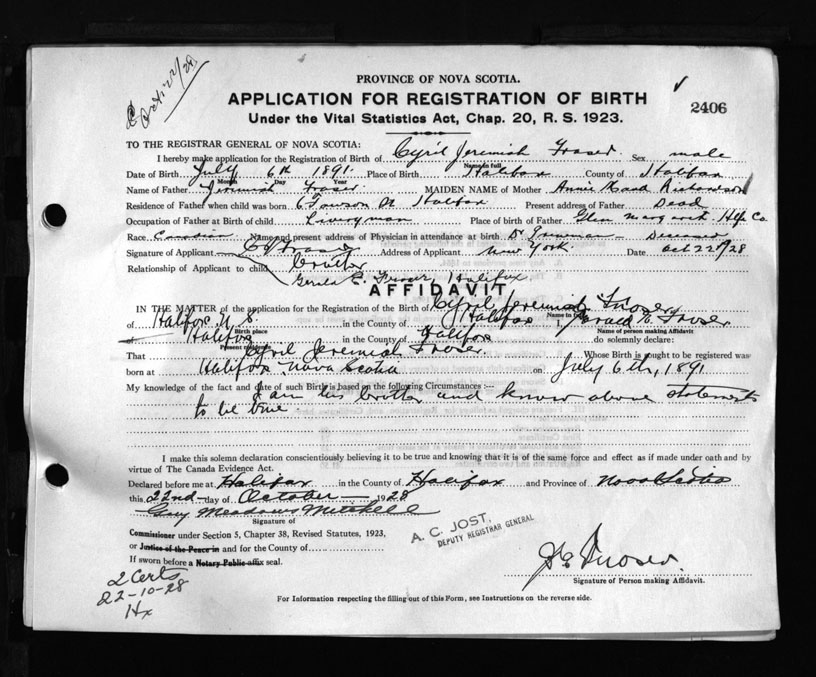 Oct 22/28
PROVINCE OF NOVA SCOTIA.
APPLICATION FOR REGISTRATION OF BIRTH
2406
Under the Vital Statistics Act, Chap. 20, R. S. 1923.
TO THE REGISTRAR GENERAL OF NOVA SCOTIA:
I hereby make application for the Registration of Birth of Cyril Jeremiah Fraser Sex male
Name in full
Date of Birth July 6th 1891. Place of Birth Halifax County of Halifax
Month Day Year
Name of Father Jeremiah Fraser MAIDEN NAME of Mother Annie Maud Richardson
Residence of Father when child was born 6 Towson St Halifax Present address of Father Dead
Occupation of Father at Birth of child Liveryman Place of birth of Father Glen Margaret Hfx Co.
Race Canadian Name and present address of Physician in attendance at birth Dr Deceased
Signature of Applicant CJ Fraser Address of Applicant New York. Date Oct 22/28
Relationship of Applicant to child brother
Gerald E. Fraser, Halifax
AFFIDAVIT
IN THE MATTER of the application for the Registration of the Birth of Cyril Jeremiah Fraser
Name in full
of Halifax N.S. in the County of Halifax I, Gerald E. Fraser
Birth place Name of person making Affidavit
of Halifax in the County of Halifax do solemnly declare:
Present residence
That Cyril Jeremiah Fraser Whose Birth is sought to be registered was
born at Halifax Nova Scotia on July 6th, 1891
My knowledge of the fact and date of such Birth is based on the following Circumstances :—
I am his brother and know above statements
to be true
I make this solemn declaration conscientiously believing it to be true and knowing that it is of the same force and effect as if made under oath and by
virtue of The Canada Evidence Act.
Declared before me at Halifax in the County of Halifax and Province of Nova Scotia
this 22nd day of October 1928
Guy Meadows Mitchell
Signature of
Commissioner under Section 5, Chapter 38, Revised Statutes, 1923,
or Justice of the Peace in and for the County of
If sworn before a Notary Public affix seal.
A. C. JOST,
DEPUTY REGISTRAR GENERAL
G E Fraser.
Signature of Person making Affidavit.
2 Certs
22-10-28
Hx
For Information respecting the filling out of this Form, see Instructions on the reverse side.